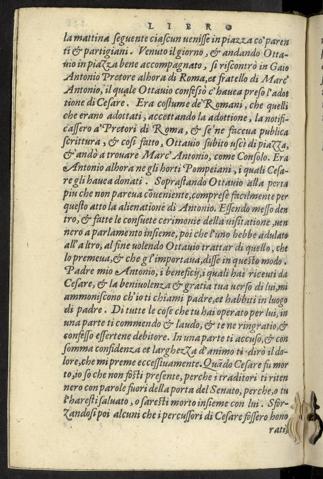 LIBRO
la mattina seguente ciascun venisse in piazza co' paren
ti & partigiani. Venuto il giorno, & andando Otta-
uio in piazza bene accompagnato, si riscontrò in Gaio
Antonio Pretore alhora di Roma, et fratello di Marc'
Antonio, il quale Ottauio confessò c'hauea preso l'adot
tione di Cesare. Era costume de' Romani, che quelli
che erano adottati, accettando la adottione, la notifi-
cassero a' Pretori di Roma, & se ne faceua publica
scrittura, & così fatto, Ottauio subito uscì di piazza,
& andò a trouare Marc' Antonio, come Consolo. Era
Antonio alhora ne gli horti Pompeiani, i quali Cesa-
re gli hauea donati. Soprastando Ottauio alla porta
piu che non pareua cõueniente, comprese facilmente per
questo atto la alienatione di Antonio. Essendo messo den
tro, & fatte le consuete cerimonie della uisitatione, uen
nero a parlamento insieme, poi che l'uno hebbe adulato
all'altro, al fine uolendo Ottauio trattar di quello, che
lo premeua, & che gl'importaua, disse in questo modo.
Padre mio Antonio, i beneficij, i quali hai riceuti da
Cesare, & la beniuolenza & gratia tua uerso di lui, mi
ammoniscono ch'io ti chiami padre, et habbiti in luogo
di padre. Di tutte le cose che tu hai operato per lui, in
una parte ti commendo & laudo, & te ne ringratio, &
confesso esserti debitore. In una parte ti accuso, & con
somma confidenza et larghezza d'animo ti dirò il do-
lore, che mi preme eccessiuamente. Quãdo Cesare fu mor
to, io so che non fosti presente, perche i traditori ti riten
nero con parole fuori della porta del Senato, perche, o tu
l'haresti saluato, o saresti morto insieme con lui. Sfor-
zandosi poi alcuni che i percussori di Cesare fossero hono
rati